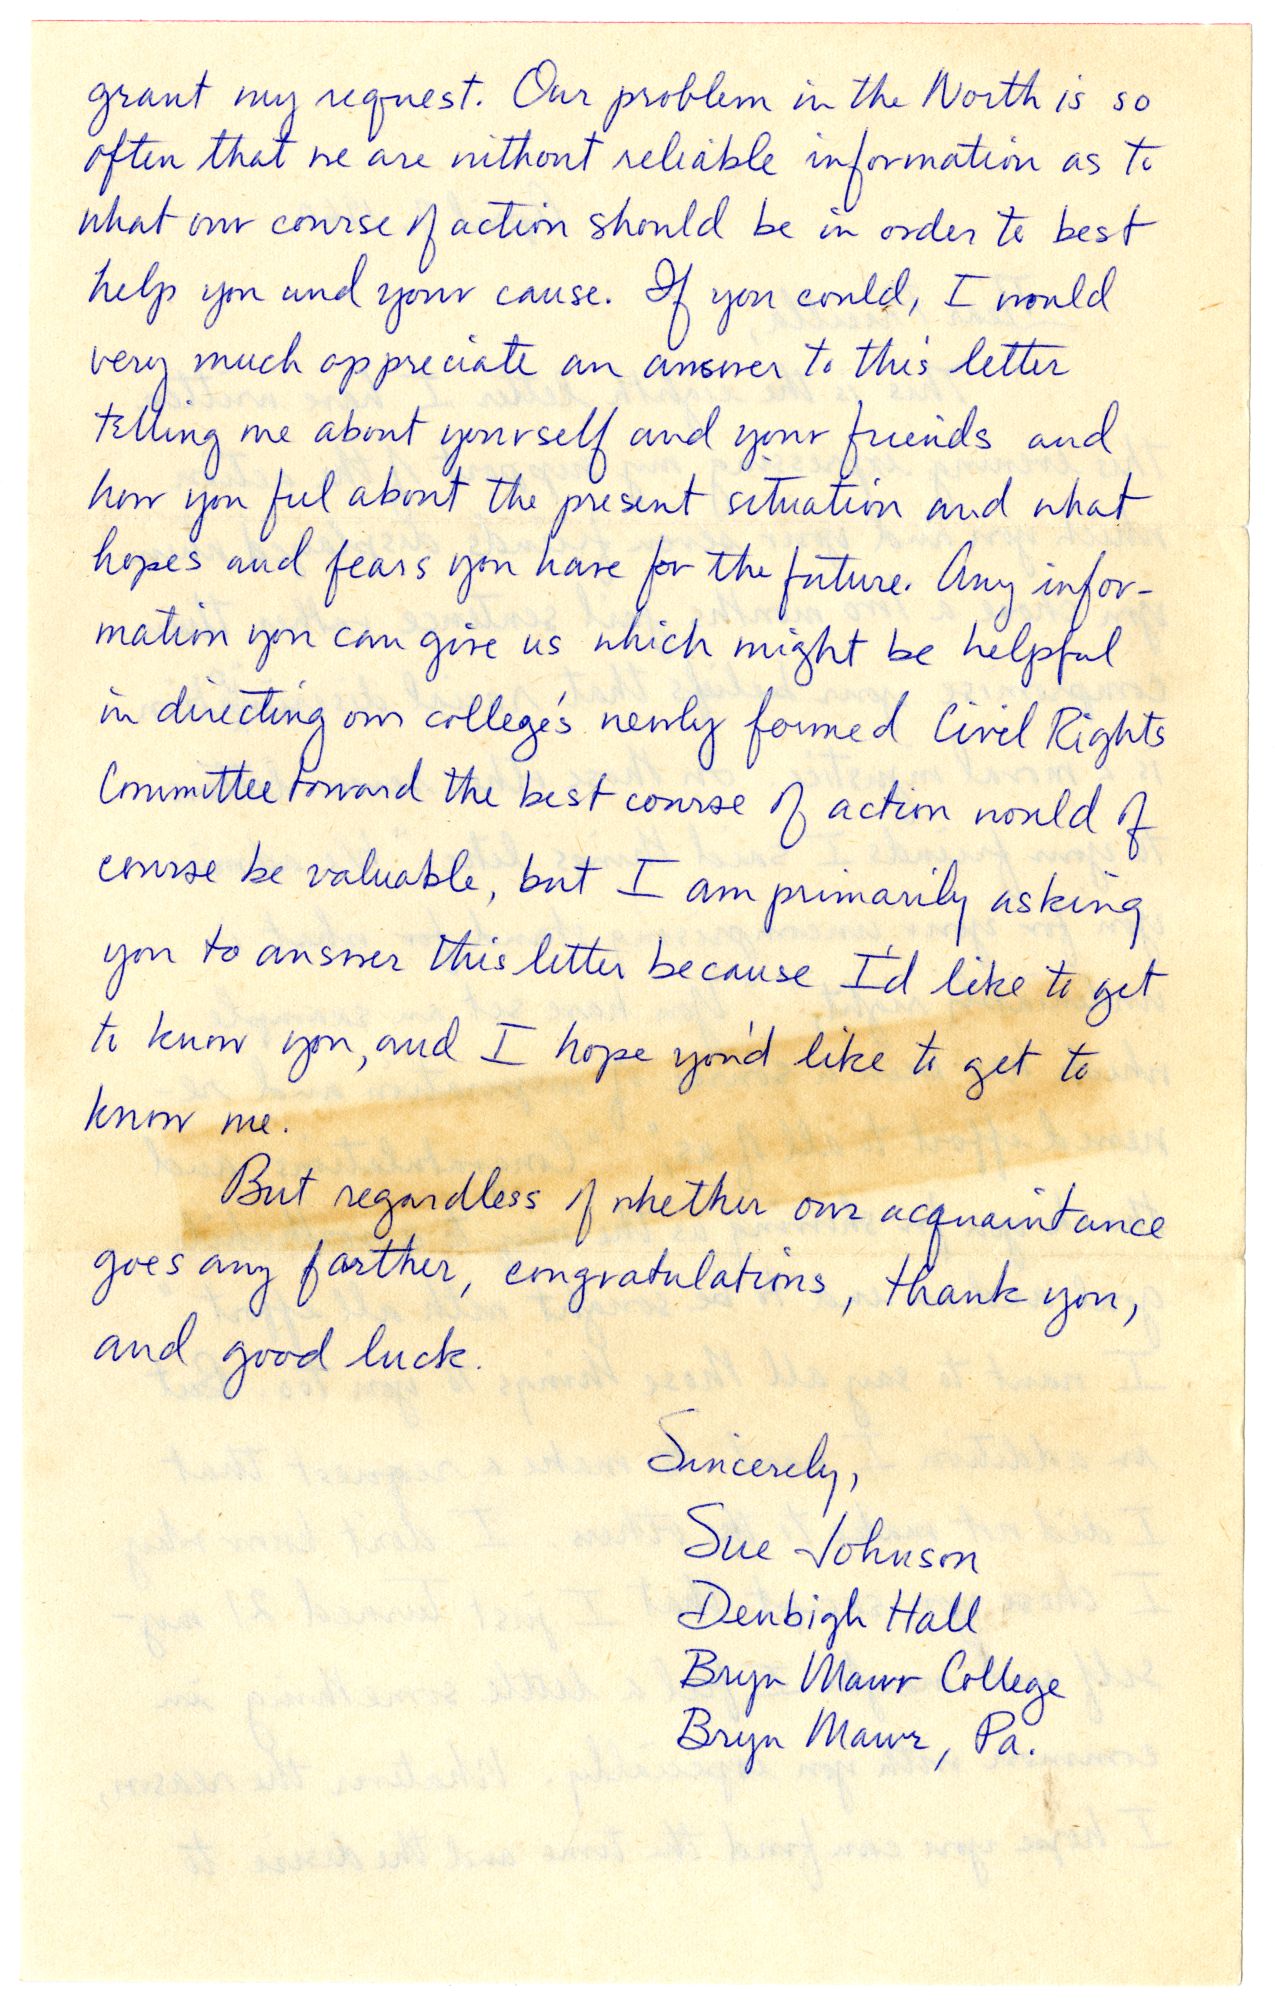 grant my request. Our problem in the North is so
often that we are without reliable information as to
what our course of action should be in order to best
help you and your cause. If you could, I would
very much appreciate an answer to this letter
telling me about yourself and your friends and
how you feel about the present situation and what
hopes and fears you have for the future. Any infor-
mation you can give us which might be helpful
in directing our college's newly formed Civil Rights
Committee toward the best course of action would of
course be valuable, but I am primarily asking
you to answer this letter because I'd like to get
to know you, and I hope you'd like to get to
know me.
But regardless of whether our acquaintance
goes any farther, congratulations, thank you,
and good luck.
Sincerely,
Sue Johnson
Denbigh Hall
Bryn Mawr College
Bryn Mawr, Pa.